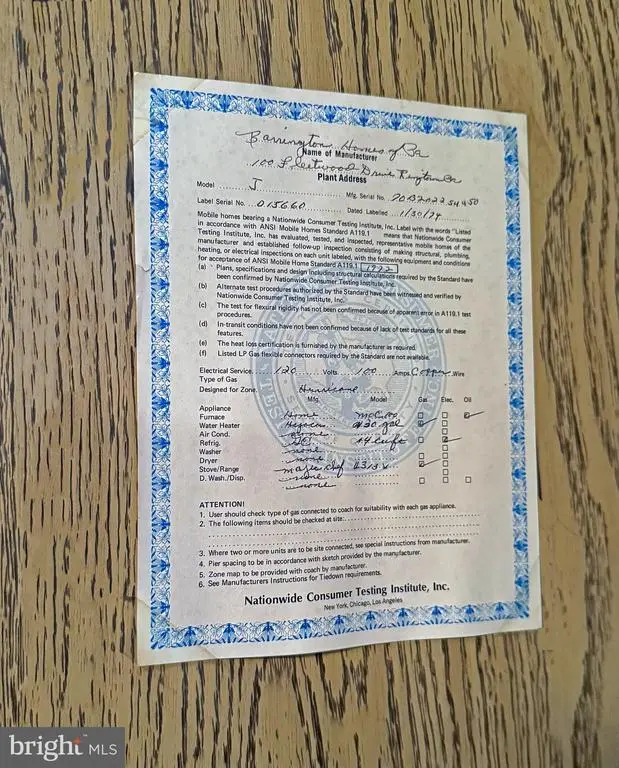 Barrington Homes of Pa
Name of Manufacturer
100 Fleetwood Drive
Plant Address
Model J Mfg. Serial No.
Label Serial No. 015660 Dated Labelled 1/30/74
Mobile homes bearing a Nationwide Consumer Testing Institute, Inc. Label with the words "Listed
in accordance with ANSI Mobile Homes Standard A119.1 means that Nationwide Consumer
Testing Institute, Inc. has evaluated, tested, and inspected, representative mobile homes of the
manufacturer and established follow-up inspection consisting of making structural, plumbing,
heating, or electrical inspections on each unit labeled, with the following equipment and conditions
for acceptance of ANSI Mobile Home Standard A119.1 1972
(a) Plans, specifications and design including structural calculations required by the Standard have
been confirmed by Nationwide Consumer Testing Institute, Inc.
(b) Alternate test procedures authorized by the Standard have been witnessed and verified by
Nationwide Consumer Testing Institute, Inc.
(c) The test for flexural rigidity has not been confirmed because of apparent error in A119.1 test
procedures.
(d) In-transit conditions have not been confirmed because of lack of test standards for all these
features.
(e) The heat loss certification is furnished by the manufacturer as required.
(f) Listed LP Gas flexible connectors required by the Standard are not available.
Electrical Service 120 Volts 100 Amps Copper Wire
Type of Gas
Designed for Zone Hurricane
Mfg. Model Gas Elec. Oil
Appliance
Furnace
Water Heater 30 gal
Air Cond. none
Refrig. 14 cuft
Washer none
Dryer none
Stove/Range
D. Wash./Disp. none
none
ATTENTION!
1. User should check type of gas connected to coach for suitability with each gas appliance.
2. The following items should be checked at site:
3. Where two or more units are to be site connected, see special instructions from manufacturer.
4. Pier spacing to be in accordance with sketch provided by the manufacturer.
5. Zone map to be provided with coach by manufacturer.
6. See Manufacturers Instructions for Tiedown requirements.
Nationwide Consumer Testing Institute, Inc.
New York, Chicago, Los Angeles
bright MLS